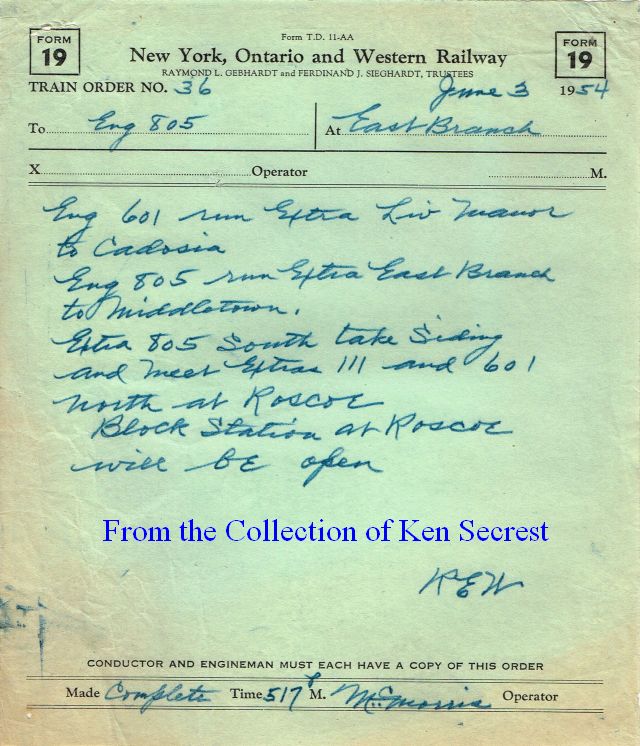 Form T.D. 11-AA
FORM 19
New York, Ontario and Western Railway
FORM 19
RAYMOND L. GEBHARDT and FERDINAND J. SIEGHARDT, TRUSTEES
TRAIN ORDER NO. 36 June 3 1954
To Eng 805 At East Branch
X Operator M.
Eng 601 run Extra Liv Manor
to Cadosia
Eng 805 run Extra East Branch
to Middletown.
Extra 805 South take Siding
and meet Extras 111 and 601
north at Roscoe
Block Station at Roscoe
will be open
From the Collection of Ken Secrest
REW
CONDUCTOR AND ENGINEMAN MUST EACH HAVE A COPY OF THIS ORDER
Made Complete Time 517 P M. McMorris Operator